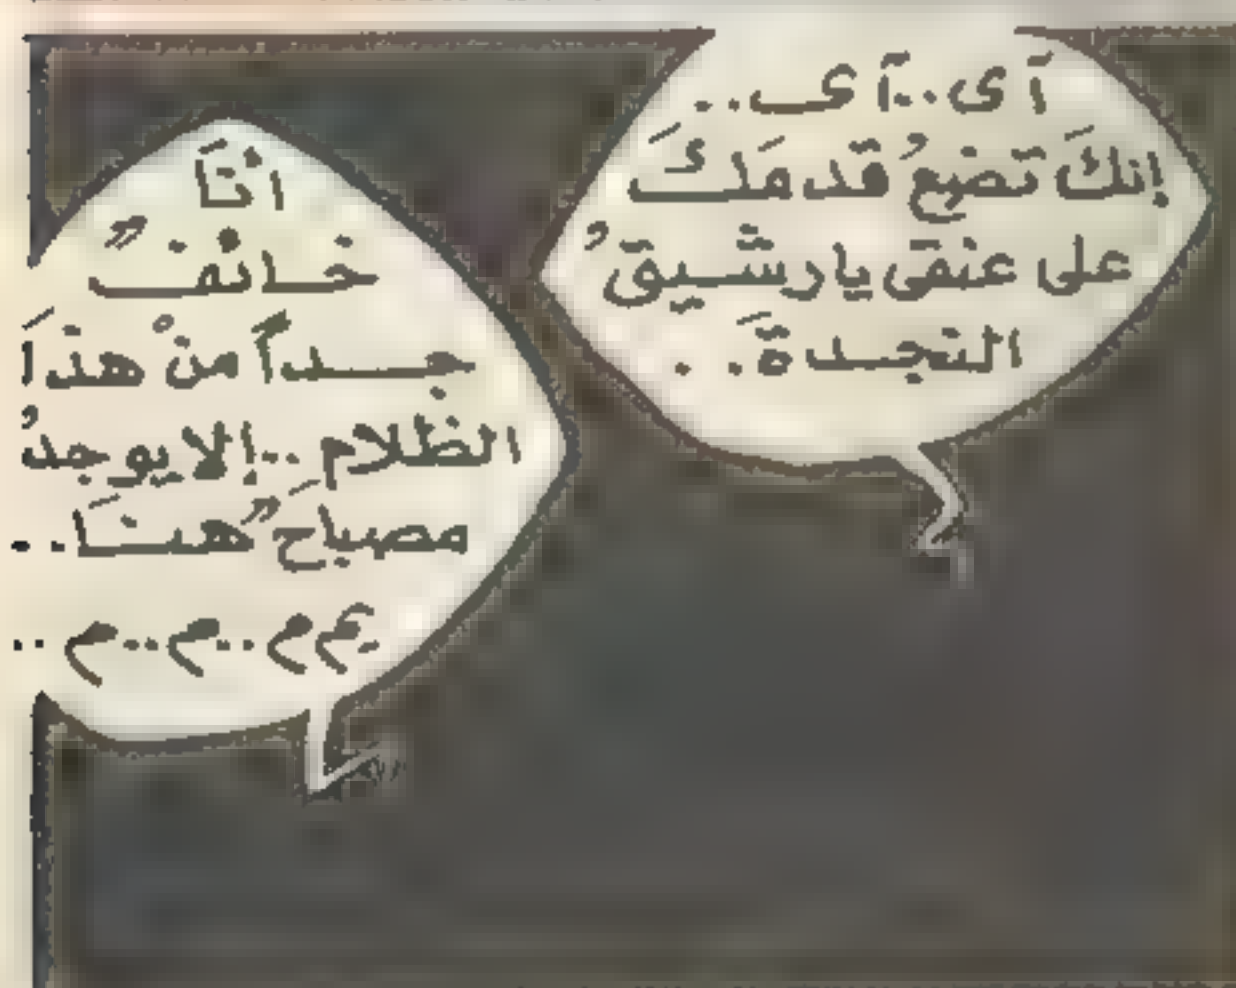 آى..آى..
إنكَ تضعُ قدمَكَ
على عنقى يارشيقُ
النجدةَ..
انَا
خائفٌ
جداً منْ هذَا
الظلام..إلايوجدُ
مصباحٌ هنَا..
يم م..م..م..